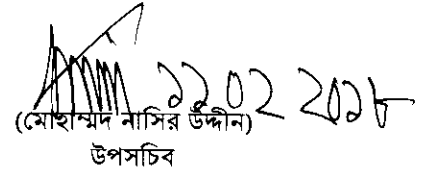 ১১ ০২ ২০১৮
(মোহাম্মদ নাসির উদ্দীন)
উপসচিব